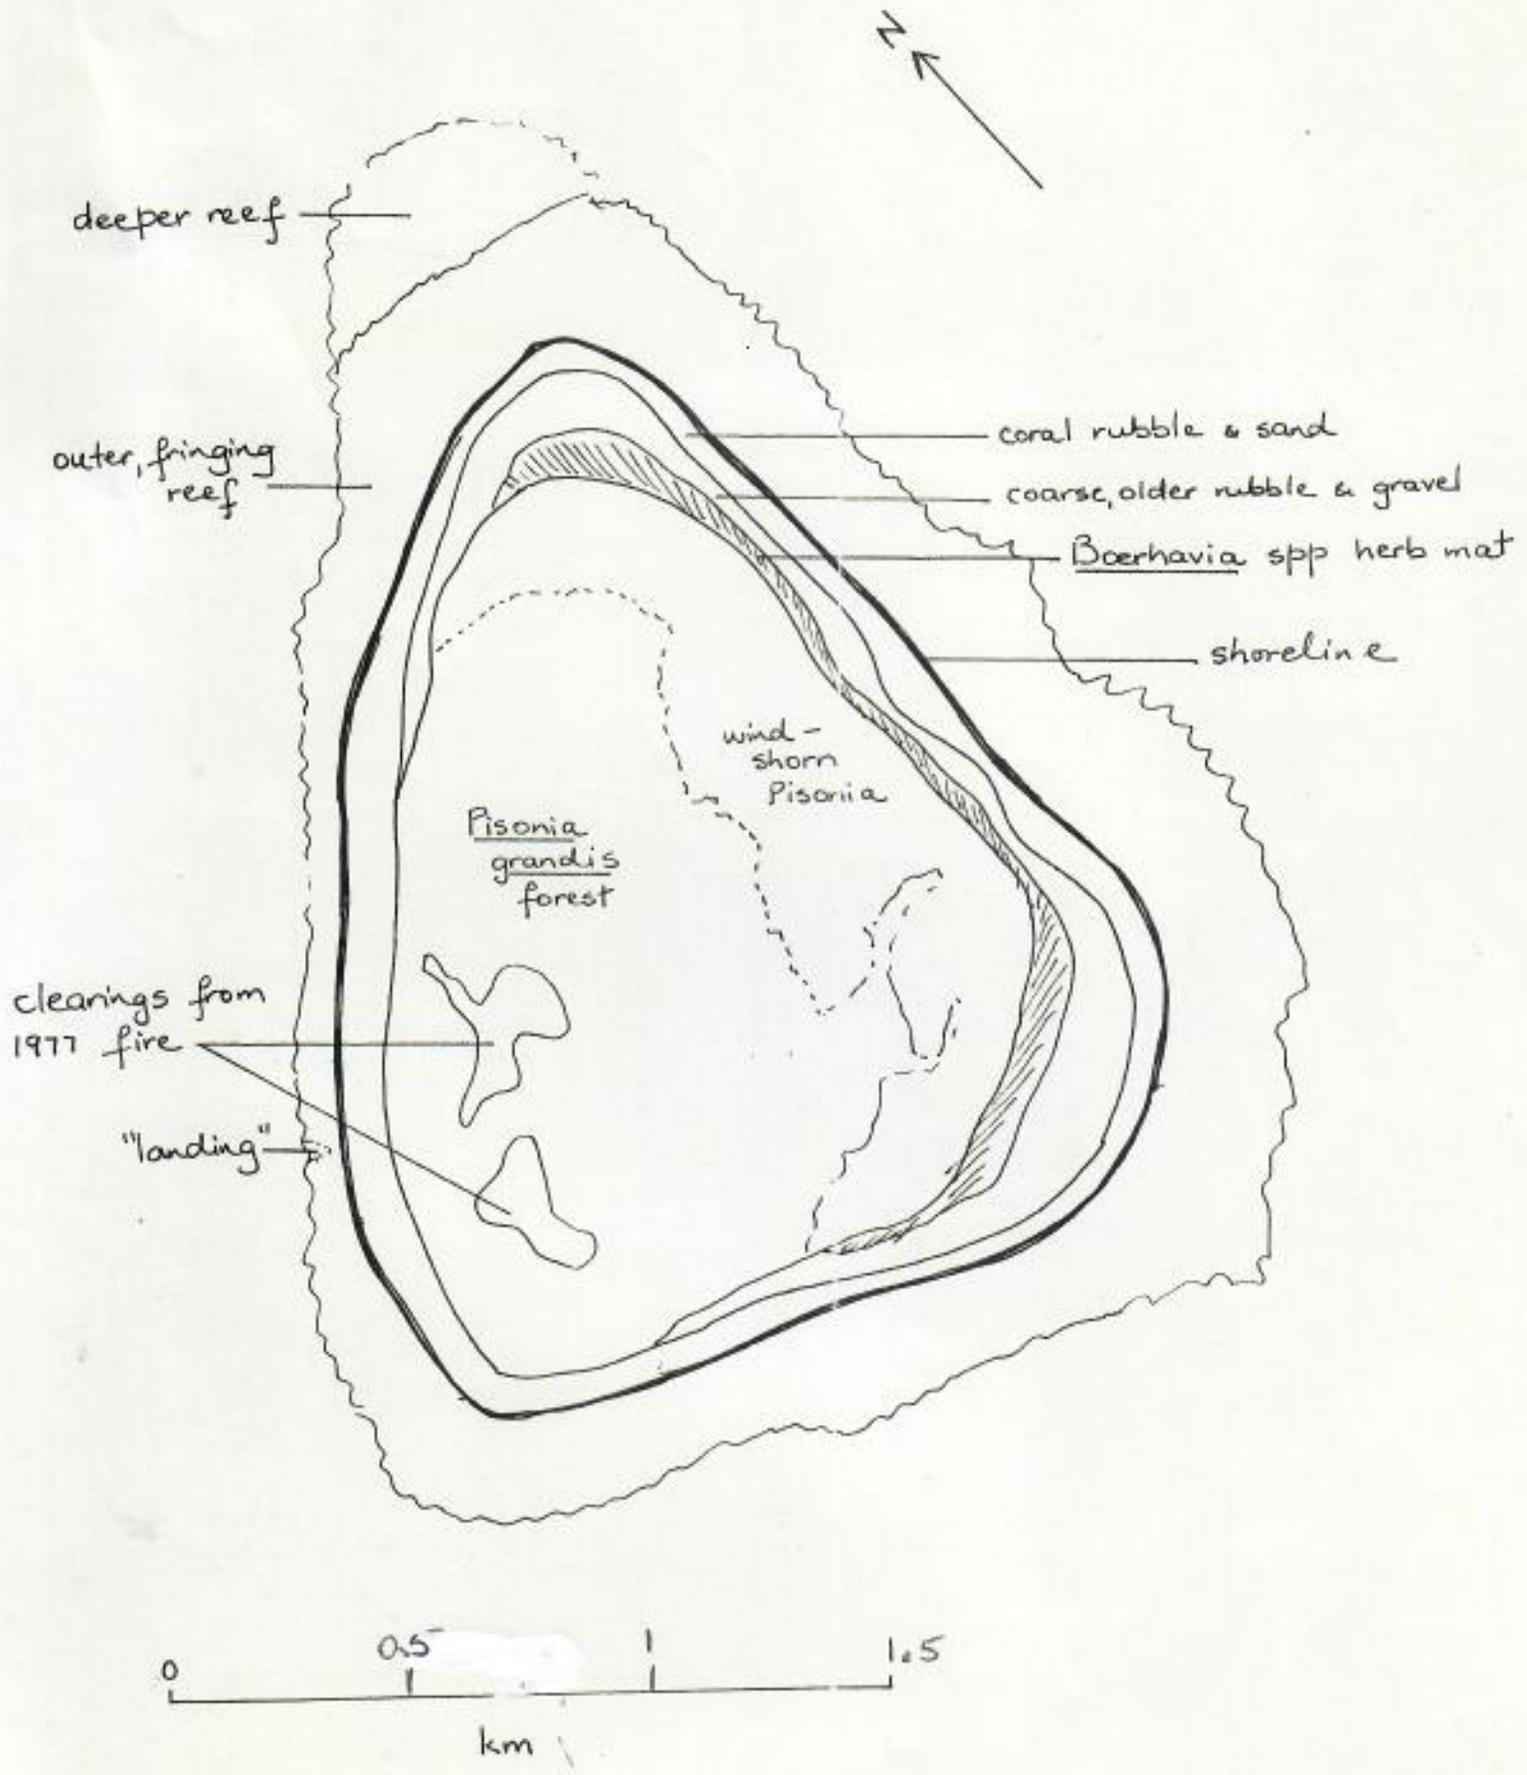 N
deeper reef
outer, fringing
reef
coral rubble & sand
coarse, older rubble & gravel
Boerhavia spp herb mat
shoreline
wind-
shorn
Pisonia
Pisonia
grandis
forest
clearings from
1977 fire
"landing"
0 0.5 1 1.5
km